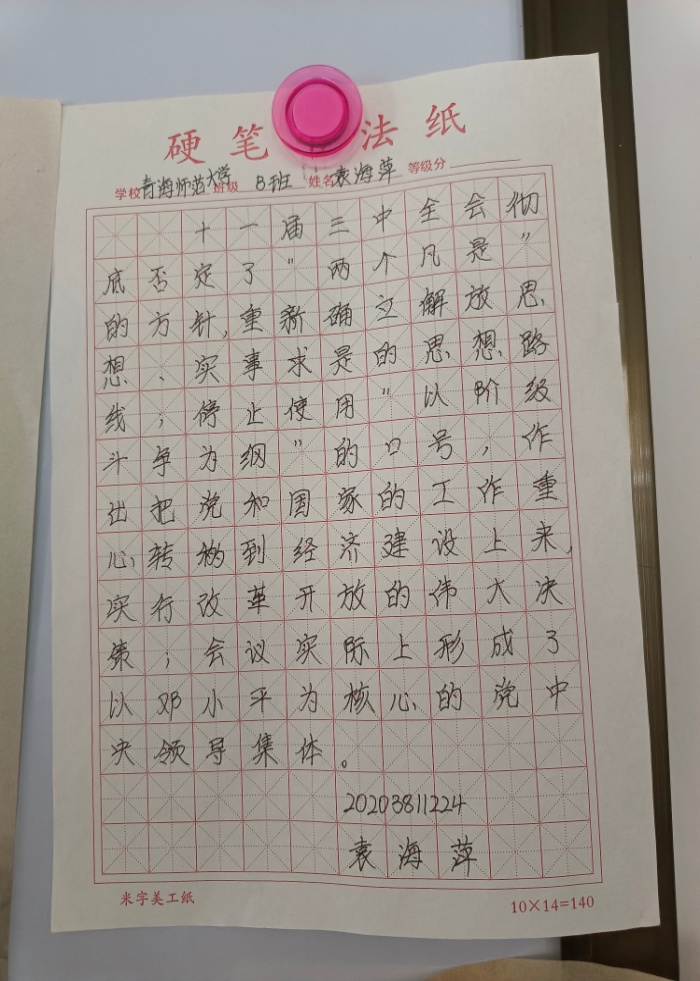 硬笔 法纸
学校青海师范大学班级 8班 姓名袁海萍 等级分
十一届三中全会彻
底否定了“两个凡是”
的方针,重新确立解放思
想、实事求是的思想路
线;停止使用“以阶级
斗争为纲”的口号,作
出把党和国家的工作重
心转移到经济建设上来,
实行改革开放的伟大决
策;会议实际上形成了
以邓小平为核心的党中
央领导集体。
20203811224
袁海萍
米字美工纸 10×14=140